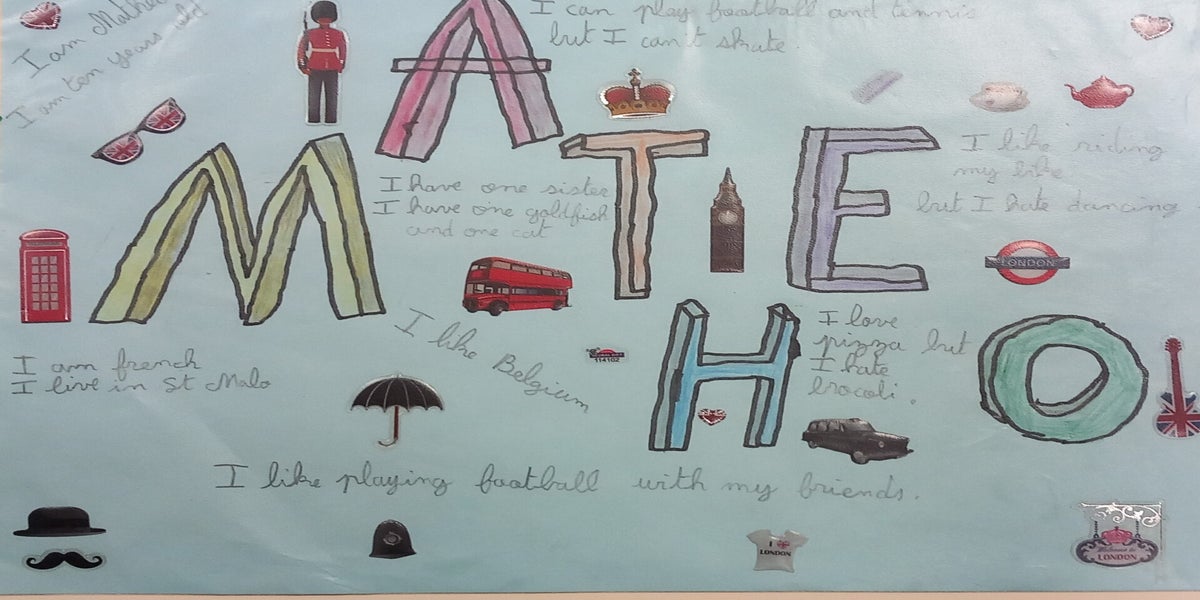 I am Mathéo
I am ten years old
I can play football and tennis
but I can't skate.
MATHEO
I have one sister
I have one goldfish
and one cat
I like riding
my bike
but I hate dancing
LONDON
I am french
I live in St Malo
I like Belgium
I love
pizza but
I hate
brocoli.
I like playing football with my friends.
I
LONDON
Welcome to
LONDON